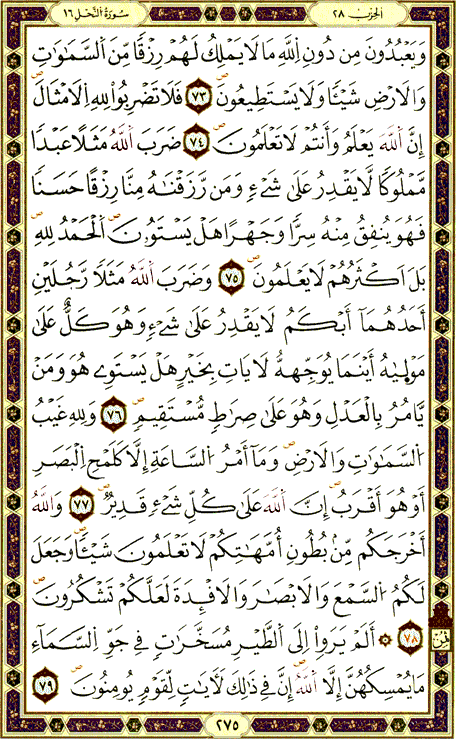 الحزب ٢٨
سُورَةُ النَّحْلِ ١٦
وَيَعْبُدُونَ مِن دُونِ اِ۬للَّهِ مَا لَا يَمْلِكُ لَهُمْ رِزْقاً مِّنَ اَ۬لسَّمَٰوَٰتِ
وَالَارْضِ شَيْـٔاً وَلَا يَسْتَطِيعُونَ ٧٣ فَلَا تَضْرِبُواْ لِلهِ اِ۬لَامْثَالَ
إِنَّ اَ۬للَّهَ يَعْلَمُ وَأَنتُمْ لَا تَعْلَمُونَ ٧٤ ضَرَبَ اَ۬للَّهُ مَثَلاً عَبْداً
مَّمْلُوكاً لَّا يَقْدِرُ عَلَىٰ شَےْءٍ وَمَن رَّزَقْنَٰهُ مِنَّا رِزْقاً حَسَناً
فَهُوَ يُنفِقُ مِنْهُ سِرّاً وَجَهْراً هَلْ يَسْتَوُۥنَ اَ۬لْحَمْدُ لِلهِ
بَلَ اَكْثَرُهُمْ لَا يَعْلَمُونَ ٧٥ وَضَرَبَ اَ۬للَّهُ مَثَلاً رَّجُلَيْنِ
أَحَدُهُمَآ أَبْكَمُ لَا يَقْدِرُ عَلَىٰ شَےْءٍ وَهُوَ كَلٌّ عَلَىٰ
مَوْل۪يٰهُ أَيْنَمَا يُوَجِّههُّ لَا يَاتِ بِخَيْرٍ هَلْ يَسْتَوِے هُوَ وَمَنْ
يَّامُرُ بِالْعَدْلِ وَهُوَ عَلَىٰ صِرَٰطٍ مُّسْتَقِيمٍ ٧٦ وَلِلهِ غَيْبُ
اُ۬لسَّمَٰوَٰتِ وَالَارْضِ وَمَآ أَمْرُ اُ۬لسَّاعَةِ إِلَّا كَلَمْحِ اِ۬لْبَصَرِ
أَوْ هُوَ أَقْرَبُ إِنَّ اَ۬للَّهَ عَلَىٰ كُلِّ شَےْءٍ قَدِيرٌ ٧٧ وَاللَّهُ
أَخْرَجَكُم مِّنۢ بُطُونِ أُمَّهَٰتِكُمْ لَا تَعْلَمُونَ شَيْـٔاً وَجَعَلَ
لَكُمُ اُ۬لسَّمْعَ وَالَابْصَٰرَ وَالَافْـِٕدَةَ لَعَلَّكُمْ تَشْكُرُونَ
٧٨ ۞ أَلَمْ يَرَوِاْ اِلَى اَ۬لطَّيْرِ مُسَخَّرَٰتٍ فِے جَوِّ اِ۬لسَّمَآءِ
ثمن
مَا يُمْسِكُهُنَّ إِلَّا اَ۬للَّهُ إِنَّ فِے ذَٰلِكَ لَأٓيَٰتٍ لِّقَوْمٍ يُومِنُونَ ٧٩
٢٧٥